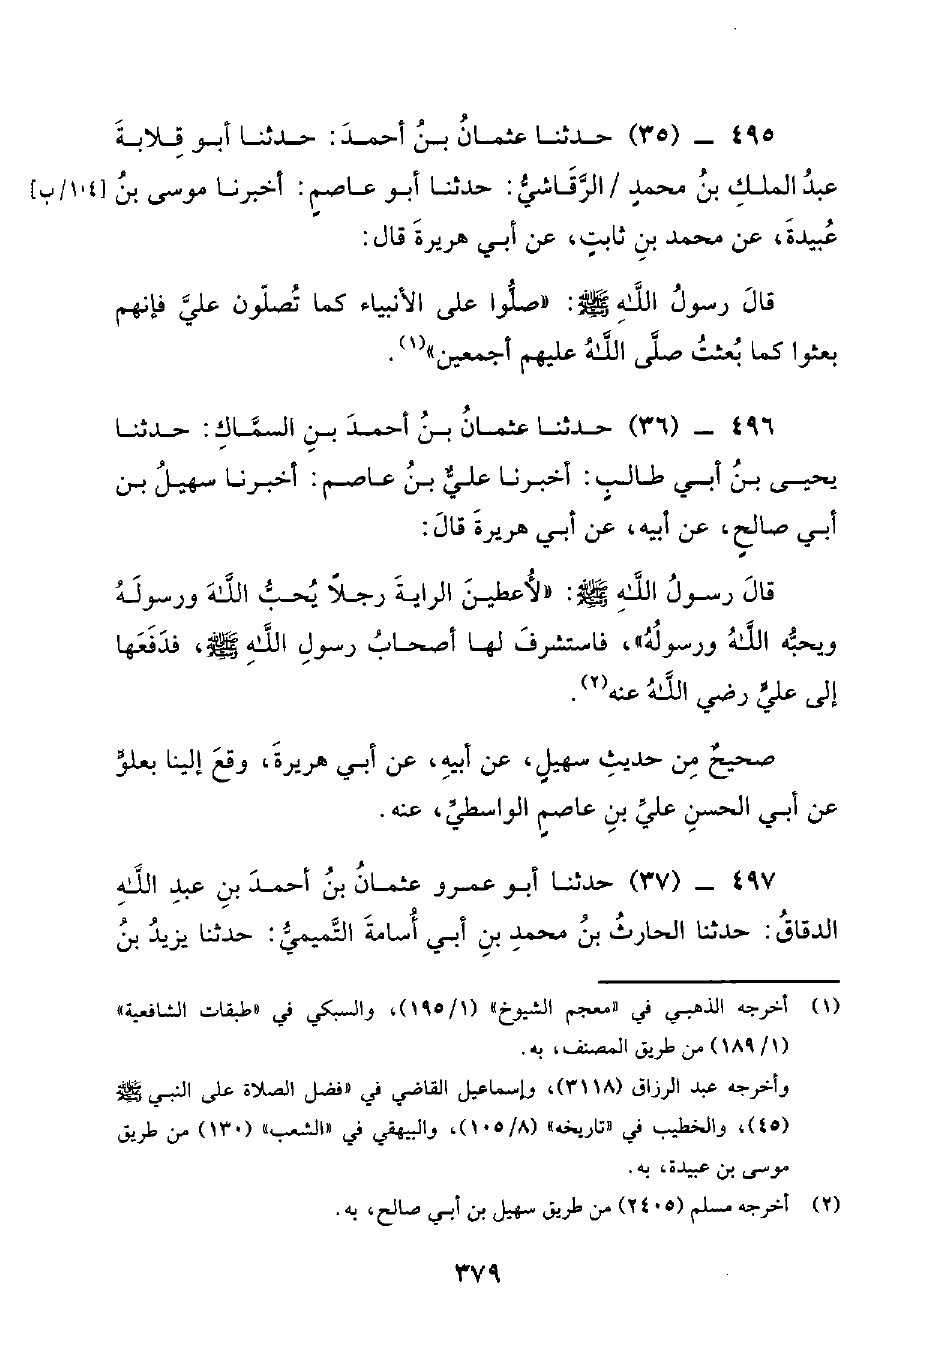 ٤٩٥ ـ (٣٥) حدثنا عثمانُ بنُ أحمدَ: حدثنا أبو قِلابةَ
عبدُ الملكِ بنُ محمدٍ / الرَّقَاشيُّ: حدثنا أبو عاصمٍ: أخبرنا موسى بنُ [١٠٤/ب]
عُبيدةَ، عن محمد بنِ ثابتٍ، عن أبي هريرةَ قال:
قالَ رسولُ اللَّهِ ﷺ: «صلُّوا على الأنبياء كما تُصلّون عليَّ فإنهم
بعثوا كما بُعثتُ صلَّى اللَّهُ عليهم أجمعين»(١).
٤٩٦ ـ (٣٦) حدثنا عثمانُ بنُ أحمدَ بنِ السمَّاكِ: حدثنا
يحيى بنُ أبي طالبٍ: أخبرنا عليُّ بنُ عاصمٍ: أخبرنا سهيلُ بن
أبي صالحٍ، عن أبيه، عن أبي هريرةَ قالَ:
قالَ رسولُ اللَّهِ ﷺ: «لأُعطينَ الرايةَ رجلاً يُحبُّ اللَّهَ ورسولَهُ
ويحبُّه اللَّهُ ورسولُهُ»، فاستشرفَ لها أصحابُ رسولِ اللَّهِ ﷺ، فدَفَعَها
إلى عليٍّ رضي اللَّهُ عنه(٢).
صحيحٌ مِن حديثِ سهيلٍ، عن أبيهِ، عن أبي هريرةَ، وقعَ إلينا بعلوٍّ
عن أبي الحسنِ عليِّ بنِ عاصمٍ الواسطيِّ، عنه.
٤٩٧ ـ (٣٧) حدثنا أبو عمرو عثمانُ بنُ أحمدَ بنِ عبدِ اللَّهِ
الدقاقُ: حدثنا الحارثُ بنُ محمدِ بنِ أبي أُسامةَ التَّميميُّ: حدثنا يزيدُ بنُ
(١) أخرجه الذهبي في «معجم الشيوخ» (١/ ١٩٥)، والسبكي في «طبقات الشافعية»
(١/ ١٨٩) من طريق المصنف، به.
وأخرجه عبد الرزاق (٣١١٨)، وإسماعيل القاضي في «فضل الصلاة على النبي ﷺ
(٤٥)، والخطيب في «تاريخه» (٨/ ١٠٥)، والبيهقي في «الشعب» (١٣٠) من طريق
موسى بن عبيدة، به.
(٢) أخرجه مسلم (٢٤٠٥) من طريق سهيل بن أبي صالح، به.
٣٧٩